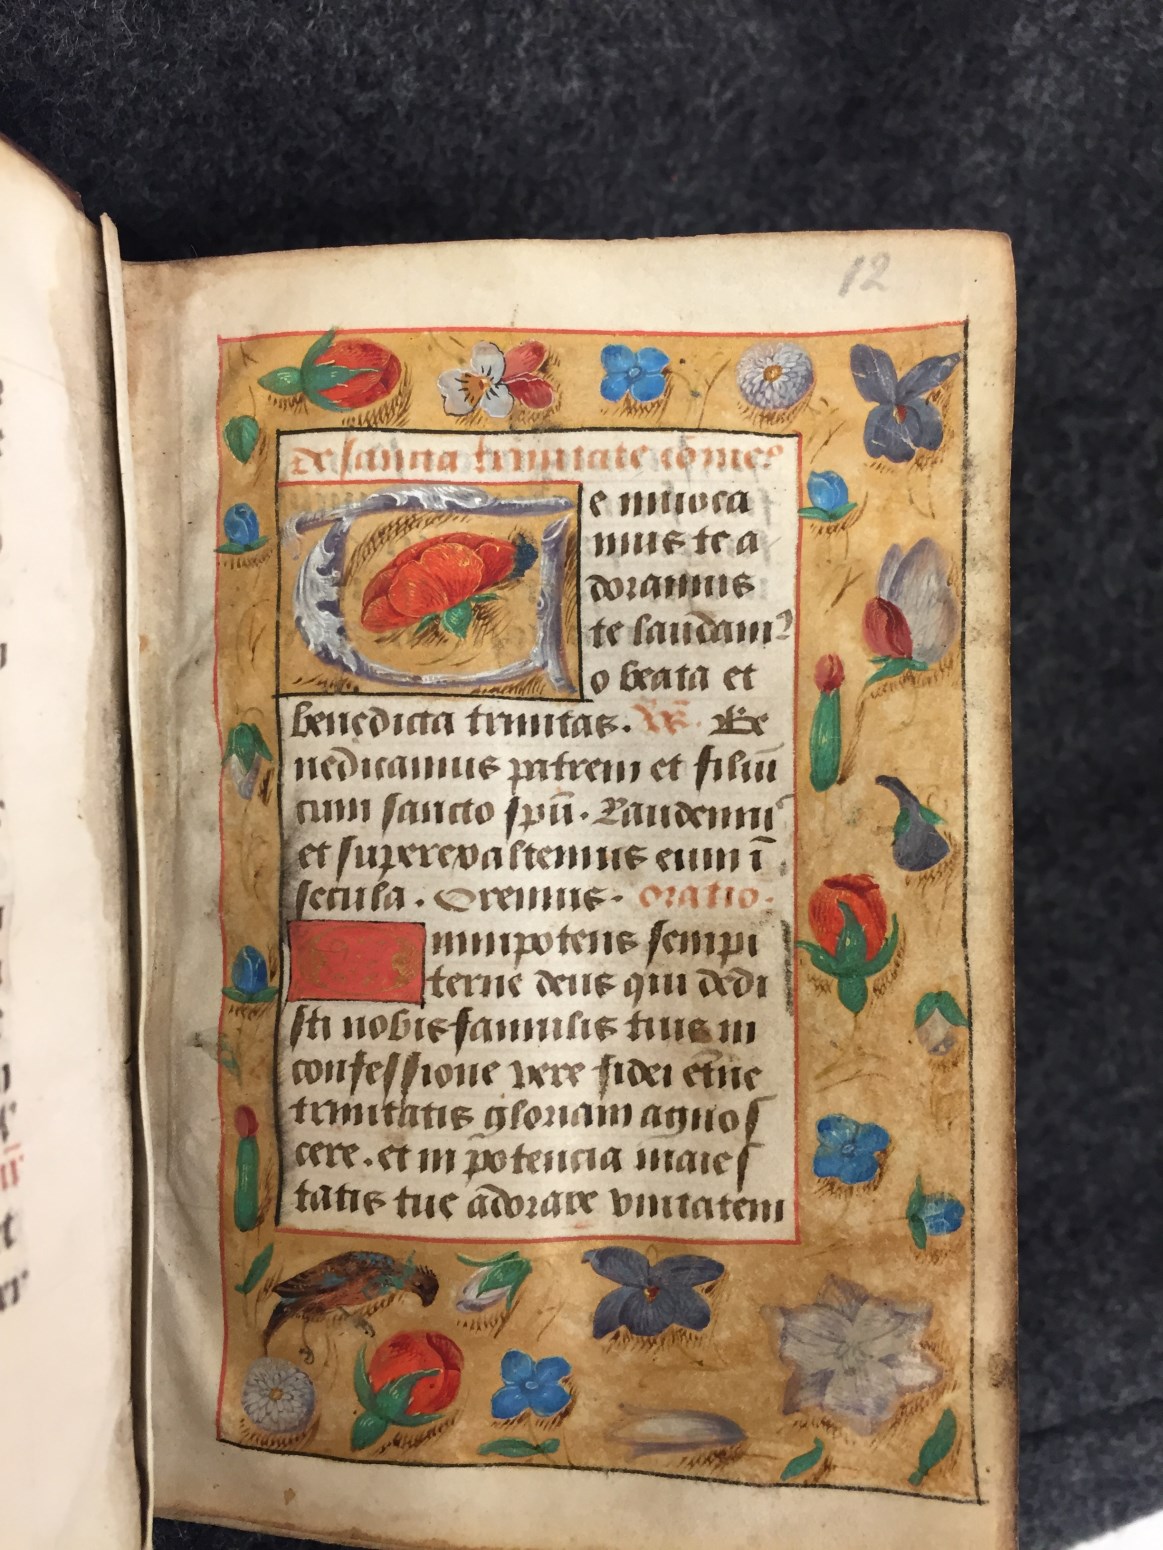 12
de sancta trinitate cōmeꝰ
Te inuoca
mus te a
doramus
te laudamꝰ
o beata et
benedicta trinitas. Be
nedicamus patrem et filiū
cum sancto spū. Laudemꝰ
et superexaltemus eum ī
secula. Oremus. oratio.
Omnipotens sempi
terne deus qui dedi
sti nobis famulis tuis in
confessione vere fidei et̄ne
trinitatis gloriam agnos
cere. et in potencia maies
tatis tue adorare vnitatem